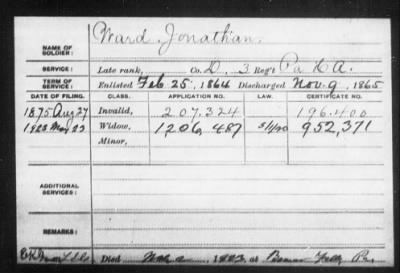 Ward, Jonathan.
NAME OF SOLDIER:
SERVICE: Late rank, Co. D, 3 Reg't Pa H A.
TERM OF SERVICE: Enlisted Feb 25, 1864 Discharged Nov. 9, 1865
DATE OF FILING. CLASS. APPLICATION NO. LAW. CERTIFICATE NO.
1875 Aug 27 Invalid, 207.324 196.400
1923 May 23 Widow, 1206,487 952,371
Minor,
ADDITIONAL SERVICES:
REMARKS:
Died 1923, at Pa.